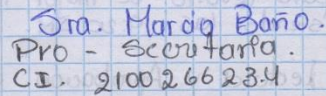 Sra. Marcia Baño.
Pro - Secretaria.
CI. 210026623.4